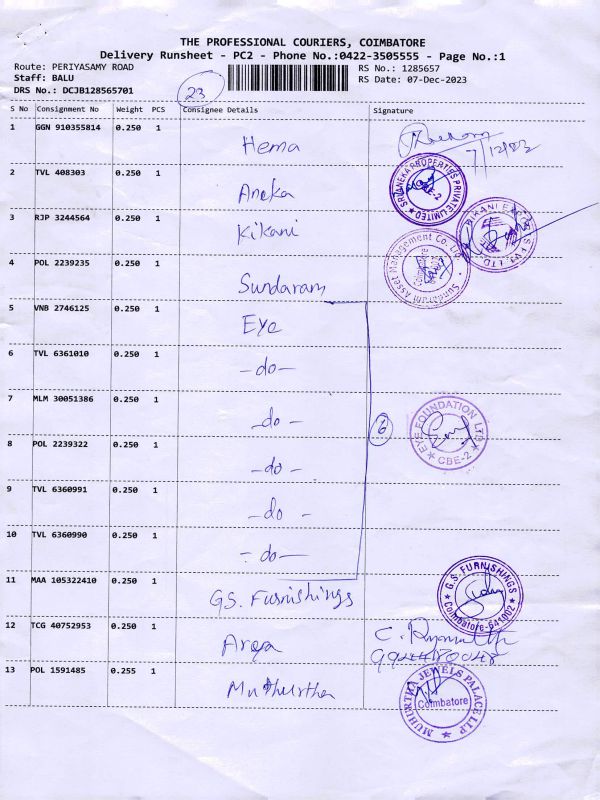 THE PROFESSIONAL COURIERS, COIMBATORE
Delivery Runsheet - PC2 - Phone No.:0422-3505555 - Page No.:1
Route: PERIYASAMY ROAD
RS No.: 1285657
Staff: BALU
RS Date: 07-Dec-2023
DRS No.: DCJB128565701
23
S No Consignment No Weight PCS Consignee Details Signature
1 GGN 910355814 0.250 1 Hema
7/12/23
2 TVL 408303 0.250 1 Aneka
SRI ANEKA PROPERTIES PRIVATE LIMITED
3 RJP 3244564 0.250 1 Kikani
4 POL 2239235 0.250 1 Sundaram
Sundaram Asset Management Co. Ltd.
Coimbatore
5 VNB 2746125 0.250 1 Eye
6 TVL 6361010 0.250 1 -do-
7 MLM 30051386 0.250 1 -do-
6
EYE FOUNDATION LTD
CBE-2
8 POL 2239322 0.250 1 -do-
9 TVL 6360991 0.250 1 -do-
10 TVL 6360990 0.250 1 -do-
11 MAA 105322410 0.250 1 GS. Furnishings
G.S. FURNISHINGS
Coimbatore-641002
12 TCG 40752953 0.250 1 Arya
13 POL 1591485 0.255 1 Muthurtha
MUHURTHA JEWELS PALACE LLP
Coimbatore